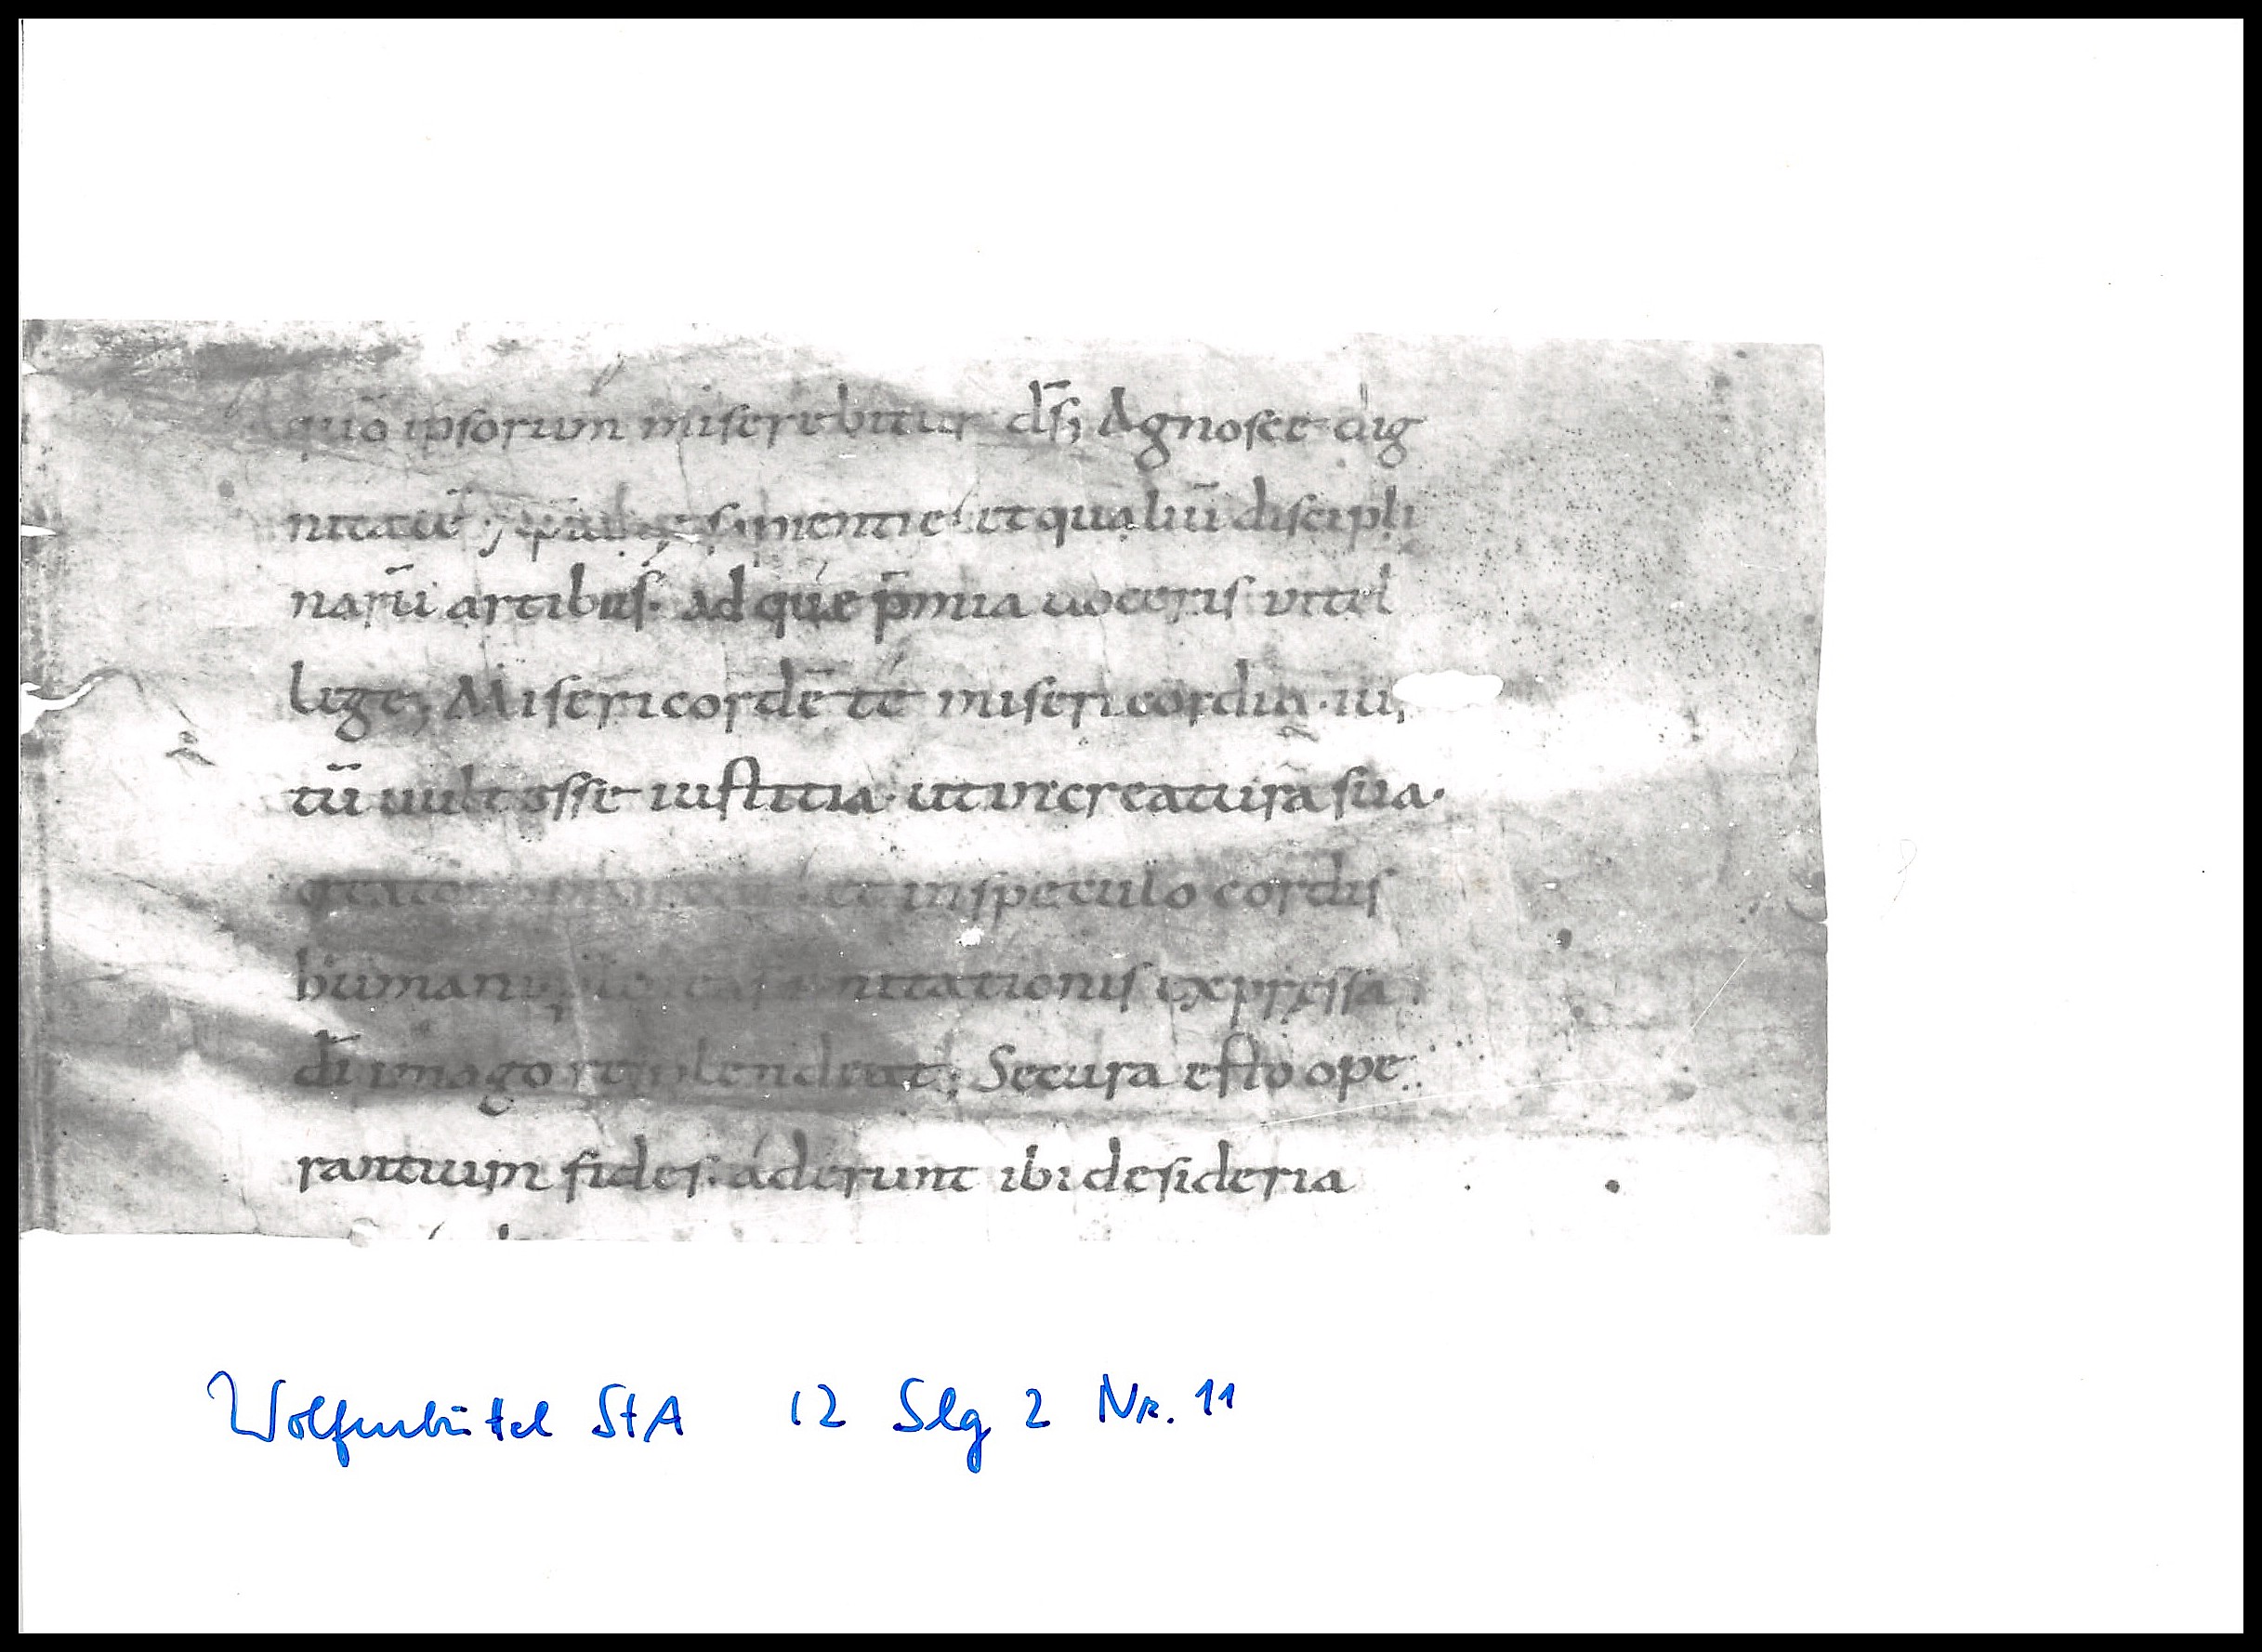 quō ipsorum miserebitur dš; Agnosce dig
nitatē sapientie et qualiū discipli
narū artibus. ad que p̄mia uoceris intel
lege; Misericordē te misericordia. ius
tū uult esse iustitia. ut in creatura sua.
creator et in speculo cordis
humani imitationis expressa
dī imago resplendeat; Secura esto ope
rantium fides. aderunt ibi desideria
Wolfenbüttel StA 12 Slg 2 Nr. 11